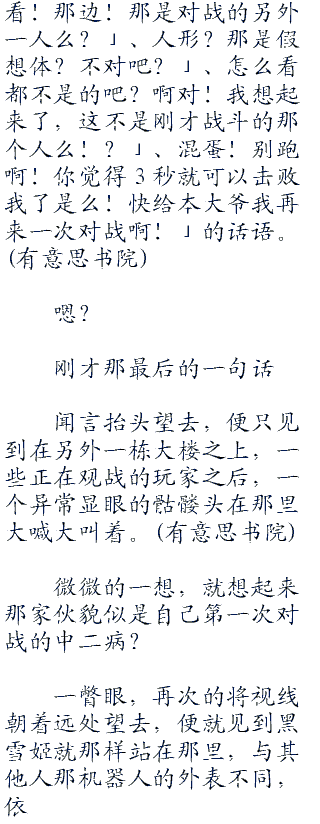 看！那边！那是对战的另外
一人么？」、人形？那是假
想体？不对吧？」、怎么看
都不是的吧？啊对！我想起
来了，这不是刚才战斗的那
个人么！？」、混蛋！别跑
啊！你觉得3秒就可以击败
我了是么！快给本大爷我再
来一次对战啊！」的话语。
(有意思书院)
嗯？
刚才那最后的一句话
闻言抬头望去，便只见
到在另外一栋大楼之上，一
些正在观战的玩家之后，一
个异常显眼的骷髅头在那里
大喊大叫着。(有意思书院)
微微的一想，就想起来
那家伙貌似是自己第一次对
战的中二病？
一瞥眼，再次的将视线
朝着远处望去，便就见到黑
雪姬就那样站在那里，与其
他人那机器人的外表不同，
依